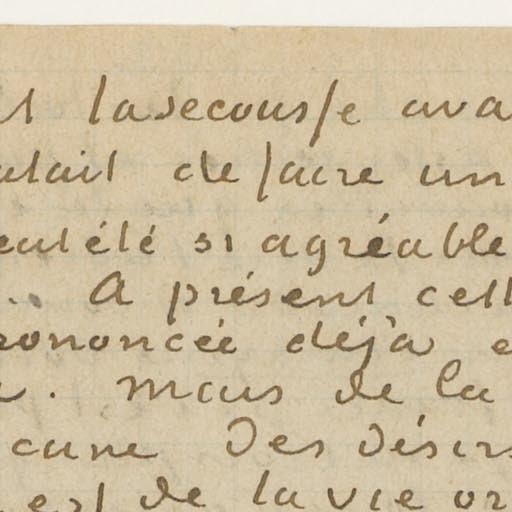 la secousse ava
de faire un
eut été si agréable
. A présent cett
rononcée déjà e
. Mais de la
cune Des désirs
est de la vie or